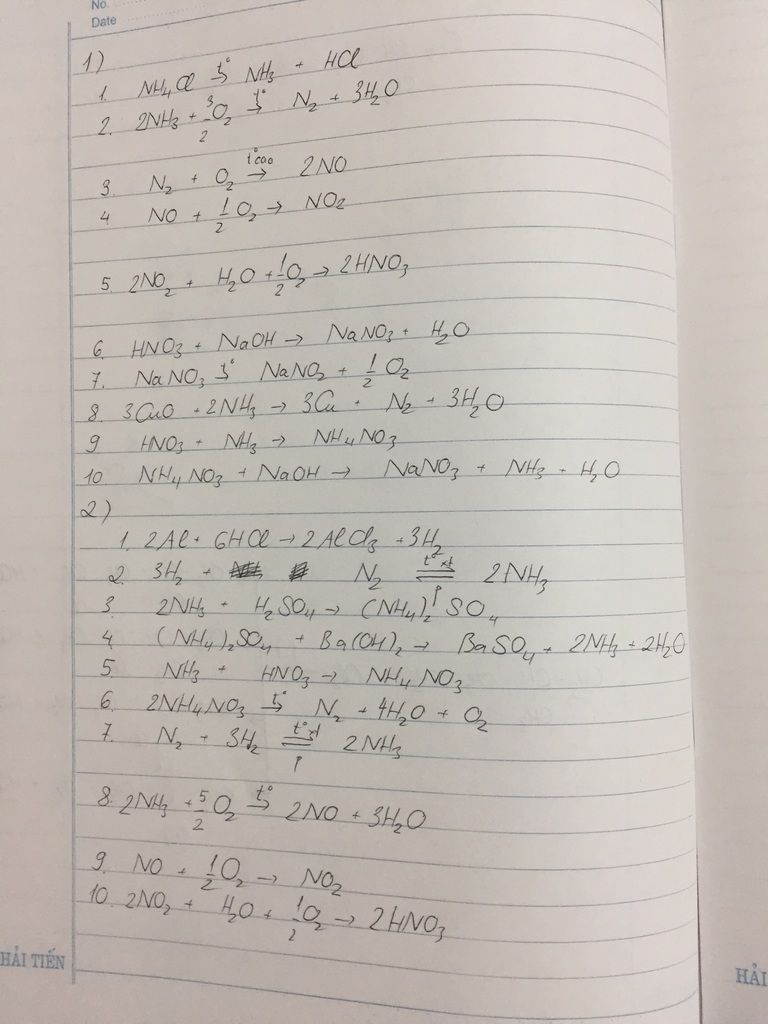 No.
Date
1)
1. NH₄Cl →(t°) NH₃ + HCl
2. 2NH₃ + 3/2 O₂ →(t°) N₂ + 3H₂O
3. N₂ + O₂ →(t° cao) 2NO
4 NO + 1/2 O₂ → NO₂
5. 2NO₂ + H₂O + 1/2 O₂ → 2HNO₃
6. HNO₃ + NaOH → NaNO₃ + H₂O
7. NaNO₃ →(t°) NaNO₂ + 1/2 O₂
8. 3CuO + 2NH₃ → 3Cu + N₂ + 3H₂O
9 HNO₃ + NH₃ → NH₄NO₃
10 NH₄NO₃ + NaOH → NaNO₃ + NH₃ + H₂O
2)
1. 2Al + 6HCl → 2AlCl₃ + 3H₂
2. 3H₂ + N₂ ⇌(t°, xt, p) 2NH₃
3. 2NH₃ + H₂SO₄ → (NH₄)₂SO₄
4. (NH₄)₂SO₄ + Ba(OH)₂ → BaSO₄ + 2NH₃ + 2H₂O
5. NH₃ + HNO₃ → NH₄NO₃
6. 2NH₄NO₃ →(t°) N₂ + 4H₂O + O₂
7. N₂ + 3H₂ ⇌(t°, xt, p) 2NH₃
8. 2NH₃ + 5/2 O₂ →(t°) 2NO + 3H₂O
9. NO + 1/2 O₂ → NO₂
10. 2NO₂ + H₂O + 1/2 O₂ → 2HNO₃
HẢI TIẾN
HẢI